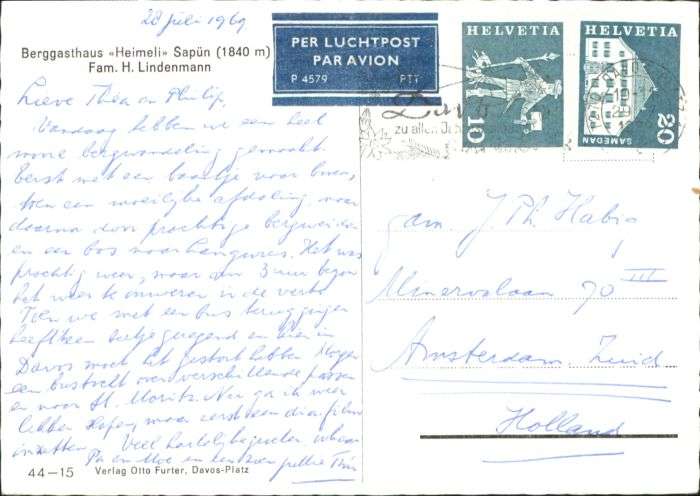 28 juli 1969
Berggasthaus «Heimeli» Sapün (1840 m)
Fam. H. Lindenmann
PER LUCHTPOST
PAR AVION
P 4579 PTT
HELVETIA
10
HELVETIA
SAMEDAN
20
zu allen
Lieve Thea en Philip,
Vandaag hebben we een heel
mooie bergwandeling gemaakt.
Eerst met een baantje naar boven,
toen een moeilijke afdaling, maar
daarna door prachtige bergweiden
en een bos naar Langwies. Het was
prachtig weer, maar om 3 uur begon
het weer te onweren in de verte
Toen we met een bus teruggingen
heeft een beetje geregend en hier in
Davos moet het gestort hebben. Morgen
een bustocht over verschillende passen
en naar St. Moritz. Nu ga ik weer
lekker slapen, maar eerst een
inzetten. Veel hartelijke groeten
Pa en Moe en een
fam. J. Ph. Habig
Minervalaan 90 III
Amsterdam Zuid
Holland
44-15 Verlag Otto Furter, Davos-Platz